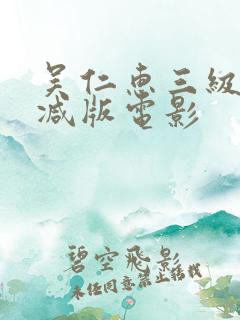 吴仁惠三級
减版電影
碧空飛影
未经同意禁止转载